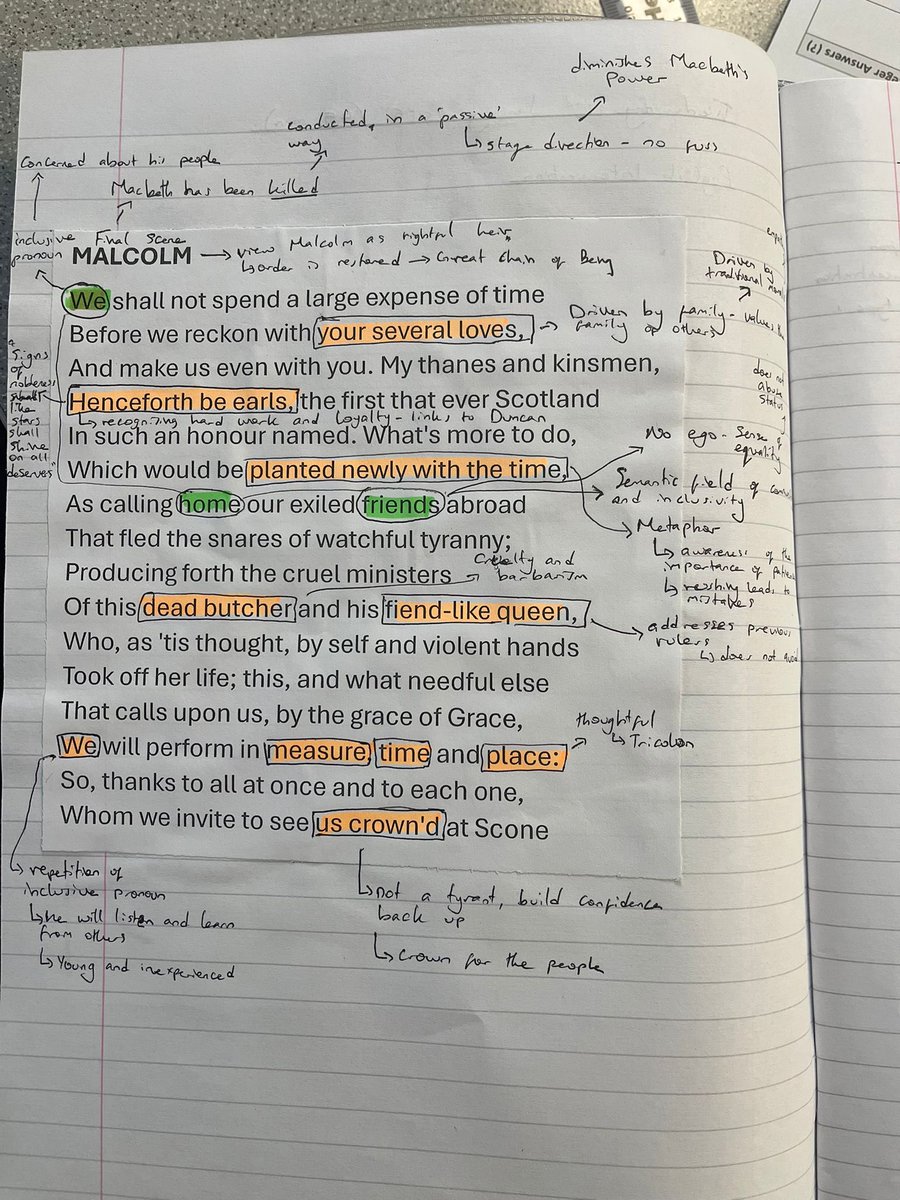 eger Answers (?)
diminishes Macbeth's
Power
conducted, in a 'passive'
way
↳ stage direction - no fuss
Concerned about his people
Macbeth has been killed
inclusive
pronoun
Final scene
MALCOLM → view Malcolm as rightful heir,
↳ order is restored → Great chain of Being
We shall not spend a large expense of time
Before we reckon with your several loves,
→ Driven by family - values
family of others
Driven by
traditional
And make us even with you. My thanes and kinsmen,
Henceforth be earls, the first that ever Scotland
↳ recognizing hard work and loyalty - links to Duncan
In such an honour named. What's more to do,
Which would be planted newly with the time,
As calling home our exiled friends abroad
That fled the snares of watchful tyranny;
Producing forth the cruel ministers
→ Cruelty and
barbarism
Of this dead butcher and his fiend-like queen,
Who, as 'tis thought, by self and violent hands
Took off her life; this, and what needful else
That calls upon us, by the grace of Grace,
We will perform in measure, time and place:
So, thanks to all at once and to each one,
Whom we invite to see us crown'd at Scone
Signs
of
nobleness
like
stars
shall
shine
on all
deservers"
does not
abuse
status
No ego - Sense of
equality
Semantic field of
and inclusivity
Metaphor
↳ awareness of the
importance of
↳ rushing leads to
mistakes
addresses previous
rulers
↳ does not avoid
thoughtful
↳ Tricolon
↳ repetition of
inclusive pronoun
↳ he will listen and learn
from others
↳ Young and inexperienced
↳ not a tyrant, build confidence
back up
↳ Crown for the people